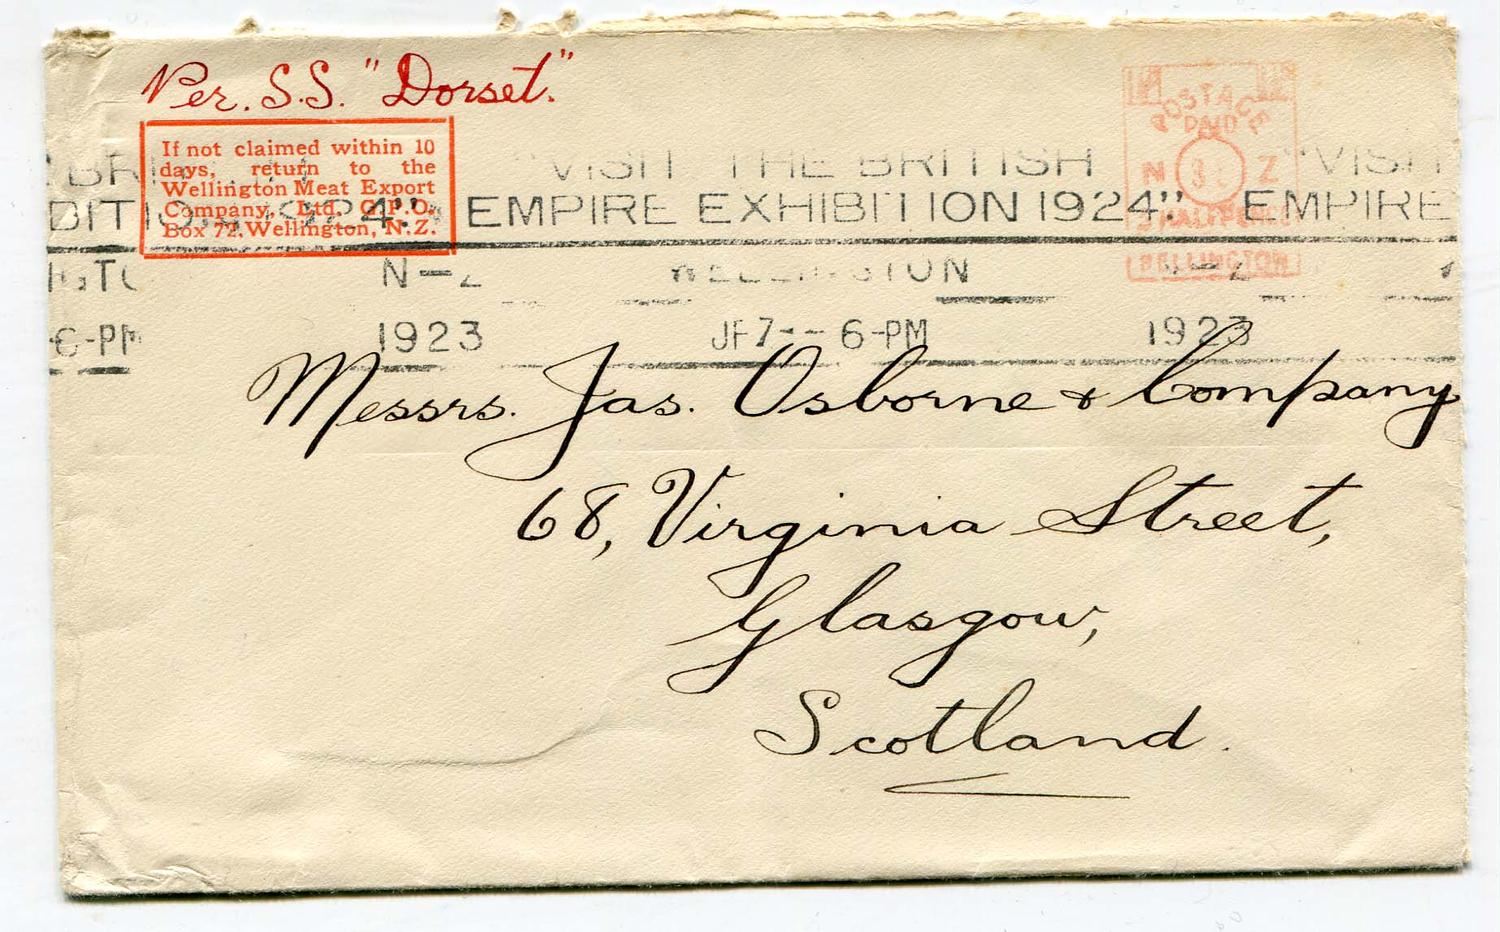 Per. S.S. "Dorset."
If not claimed within 10
days, return to the
Wellington Meat Export
Company, Ltd. G.P.O.
Box 72, Wellington, N.Z.
POSTAGE
PAID
N Z
HALFPENNY
WELLINGTON
"VISIT THE BRITISH "VISIT
DITIO 1924" EMPIRE EXHIBITION 1924" EMPIRE
N–Z WELLINGTON N–Z
6-PM 1923 6-PM 1923
Messrs. Jas. Osborne & Company
68, Virginia Street,
Glasgow,
Scotland.